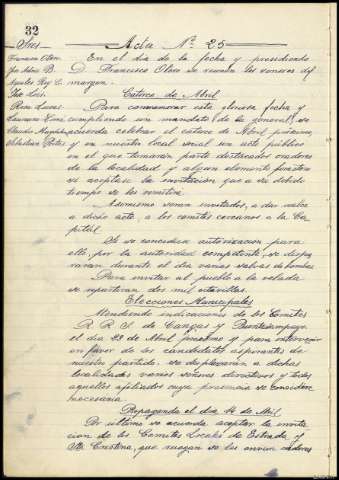 32
Sres
Acta Nº 25
En el dia de la fecha y presidiendo
D. Francisco Otero se reunen los señores del
margen.
Catorce de Abril
Para conmemorar esta gloriosa fecha y
cumpliendo un mandato de la general, se
acuerda celebrar el catorce de Abril próximo,
y en nuestro local social un acto público
en el que tomarán parte destacados oradores
de la localidad y algun elemento forastero
se acepten la invitación que a su debido
tiempo se les remitira.
Asimismo seran invitados, a dar realce
a dicho acto, a los comites cercanos a la Ca-
pital.
Si se concediera autorizacion para
ello, por la autoridad competente, se dispa-
raran durante el dia varias salvas de bombas.
Para invitar al pueblo a la velada
se repartiran dos mil octavillas.
Elecciones Municipales
Atendiendo indicaciones de los Comites
R. R. S. de Cangas y Puentesampayo
el dia 23 de Abril proximo y para intervenir
en favor de los candidatos aspirantes de
nuestro partido se desplazarán a dichas
localidades varios señores directivos y todos
aquellos afiliados cuya presencia se considere
necesaria.
Propaganda el dia 14 de Abril.
Por ultimo se acuerda aceptar la invita-
cion de los Comites Locales de Estrada y
Sta Cristina, que ruegan se les envien oradores